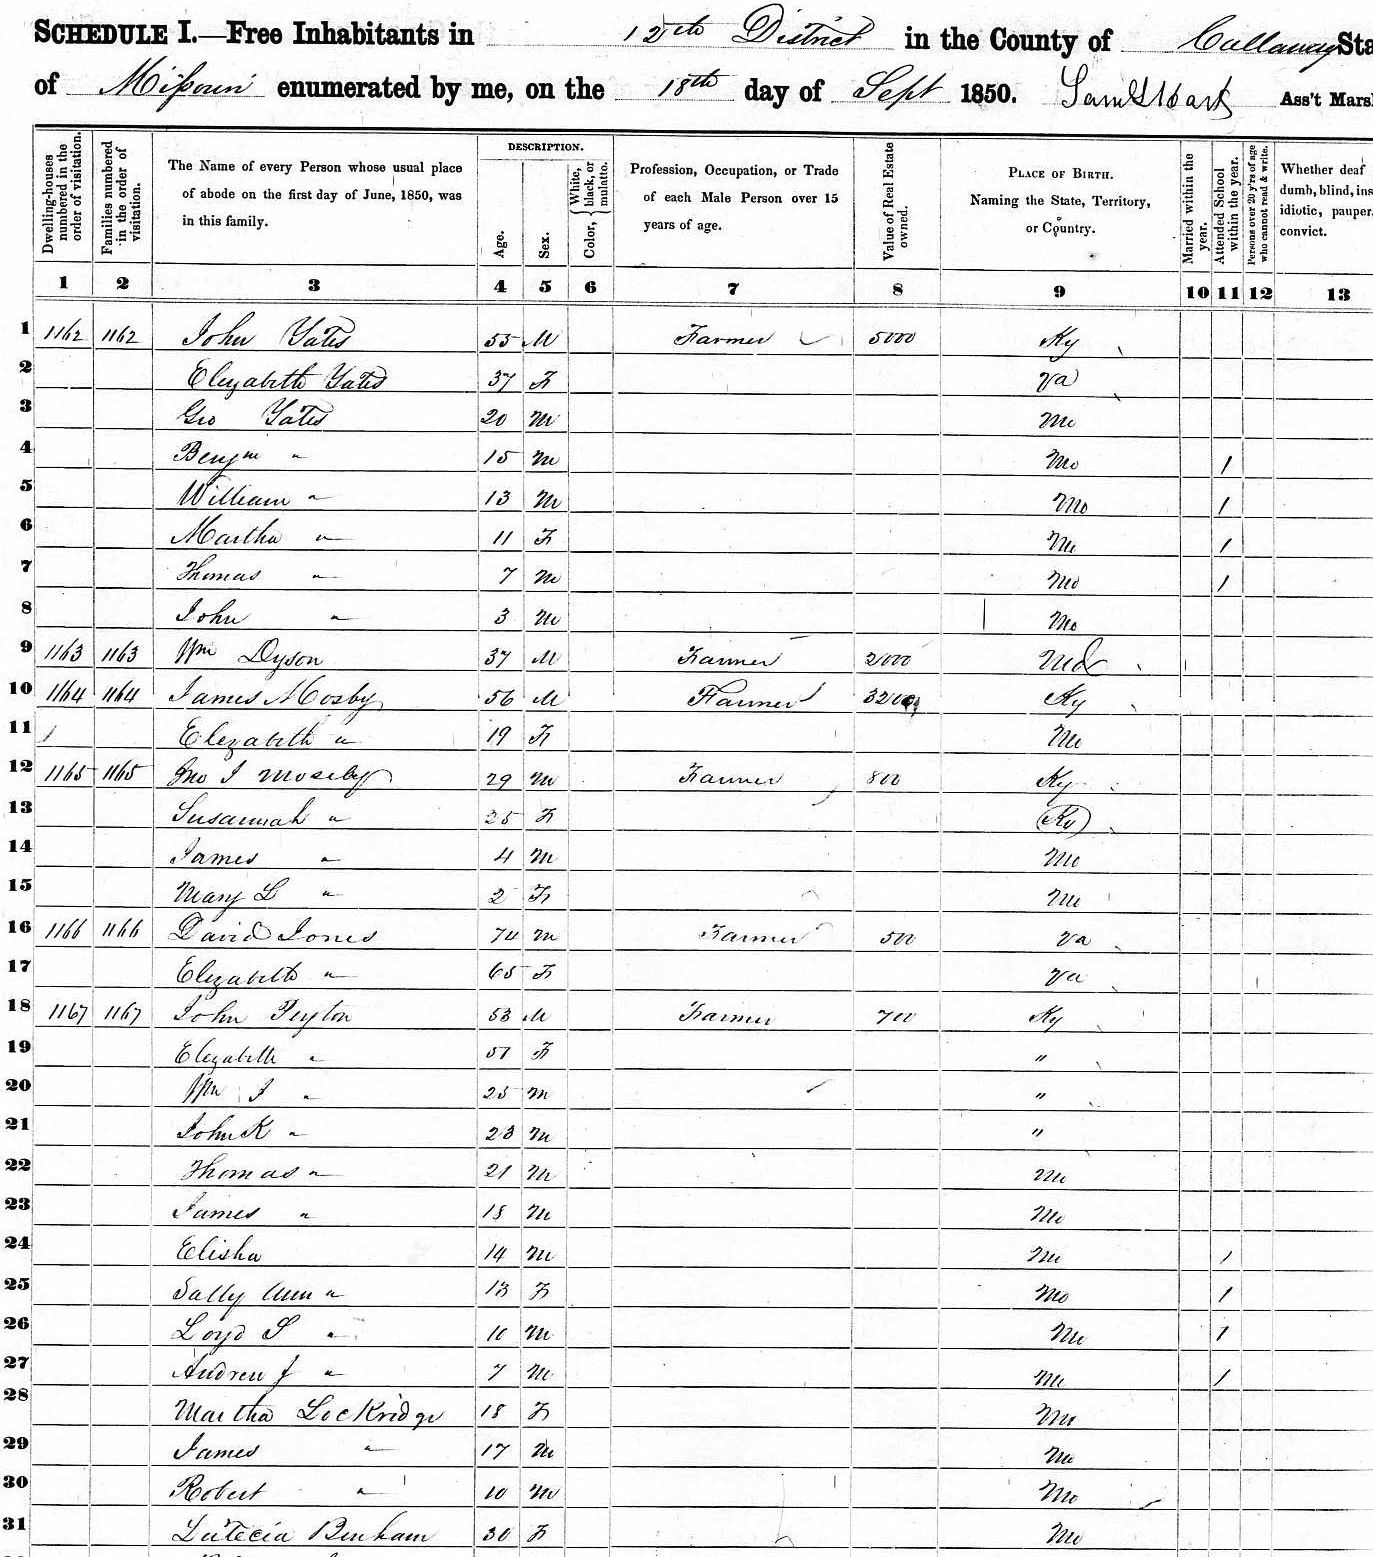 SCHEDULE I.—Free Inhabitants in 12th District in the County of Callaway Sta
of Missouri enumerated by me, on the 18th day of Sept 1850. Ass't Mars
Dwelling-houses numbered in the order of visitation.
Families numbered in the order of visitation.
The Name of every Person whose usual place of abode on the first day of June, 1850, was in this family.
DESCRIPTION.
Age.
Sex.
Color, { White, black, or mulatto.
Profession, Occupation, or Trade of each Male Person over 15 years of age.
Value of Real Estate owned.
PLACE OF BIRTH. Naming the State, Territory, or Country.
Married within the year.
Attended School within the year.
Persons over 20 y'rs of age who cannot read & write.
Whether deaf dumb, blind, ins idiotic, pauper, convict.
1 2 3 4 5 6 7 8 9 10 11 12 13
1 1162 1162 John Yates 55 M Farmer 5000 Ky
2 Elizabeth Yates 37 F Va
3 Geo Yates 20 M Mo
4 Benjm " 15 M Mo 1
5 William " 13 M Mo 1
6 Martha " 11 F Mo 1
7 Thomas " 7 M Mo 1
8 John " 3 M Mo
9 1163 1163 Wm Dyson 37 M Farmer 2000 Md
10 1164 1164 James Mosby 56 M Farmer Ky
11 Elezabeth " 19 F Mo
12 1165 1165 Moseby 29 M Farmer 800 Ky
13 Susannah " 25 F Ky
14 James " 4 M Mo
15 Mary L " 2 F Mo
16 1166 1166 David Jones 74 M Farmer 500 Va
17 Elezabeth " 65 F Va
18 1167 1167 John Peyton 53 M Farmer 700 Ky
19 Elezabeth " 51 F "
20 Wm J " 25 M "
21 John K " 23 M "
22 Thomas " 21 M Mo
23 James " 18 M Mo
24 Elisha 14 M Mo 1
25 Sally Ann " 13 F Mo 1
26 Loyd S " 10 M Mo 1
27 Andrew J " 7 M Mo 1
28 Martha Lockridge 18 F Mo
29 James " 17 M Mo
30 Robert " 10 M Mo
31 Lutecia Benham 30 F Mo